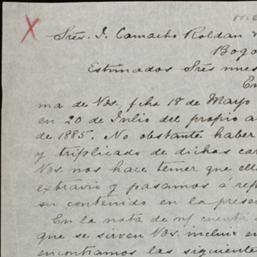 Sres. J. Camacho Roldan
Bogo
Estimados Sres nues
En
ma de Vds. fcha 18 de Mayo
en 20 de Julio del propio a
de 1885. No obstante haber
y triplicado de dichas car
Vds nos hace temer que ell
extravio y pasamos a rep
su contenido en la prese
En la nota de cuenta
que se sirven Vds. incluir en
encontramos las siguiente